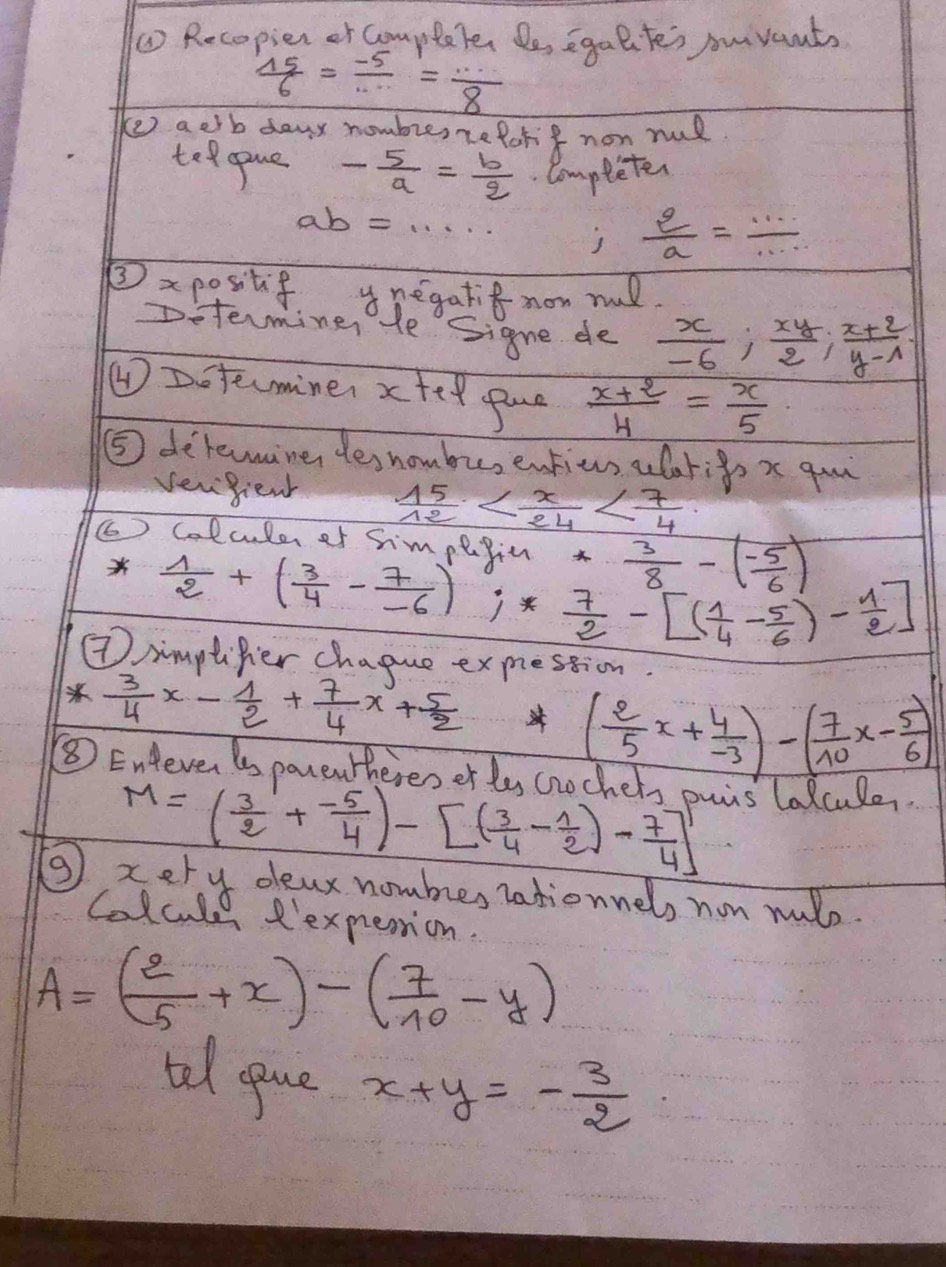 ① Recopier et compléter les égalités suivants
15/6 = -5/.... = ..../8
② a et b deux nombres relatif non nul
tel que - 5/a = b/2 . Compléter
ab = ..... ; 2/a = ..../....
③ x positif y négatif non nul.
Déterminer le signe de x/-6 ; xy/2 ; x+2/y-1
④ Déterminer x tel que x+2/4 = x/5 .
⑤ déterminer les nombres entiers relatifs x qui
verifient 15/12 < x/24 < 7/4 .
⑥ Calculer et Simplifier * 3/8 - (-5/6)
* 1/2 + (3/4 - 7/-6) ; * 7/2 - [(1/4 - 5/6) - 1/2]
⑦ simplifier chaque expression .
* 3/4 x - 1/2 + 7/4 x + 5/2 * (2/5 x + 4/-3) - (7/10 x - 5/6)
⑧ Enlever les parenthèses et les crochets puis Calculer .
M = (3/2 + -5/4) - [(3/4 - 1/2) - 7/4]
⑨ x et y deux nombres rationnels non nuls .
Calculer l'expression .
A = (2/5 + x) - (7/10 - y)
tel que x + y = - 3/2 .